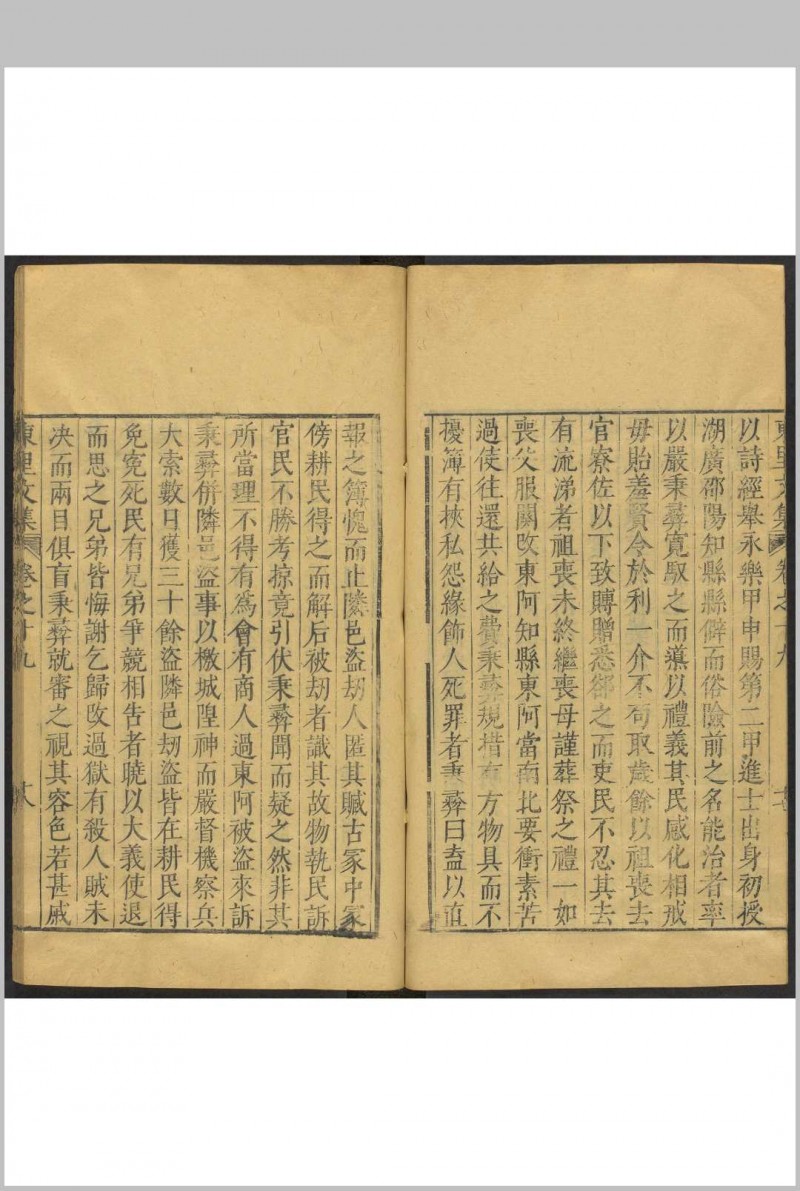 東里文集 卷之十九
以詩經舉永樂甲申賜第二甲進士出身初授
湖廣邵陽知縣縣僻而俗險前之名能治者率
以嚴秉彛寬馭之而導以禮義其民感化相戒
毋貽羞賢令於利一介不苟取歲餘以祖喪去
官寮佐以下致賻贈悉郤之而吏民不忍其去
有流涕者祖喪未終繼喪母謹葬祭之禮一如
喪父服闋改東阿知縣東阿當南北要衝素苦
過使往還共給之費秉彛規措有方物具而不
擾簿有挾私怨緣飾人死罪者秉彛曰盍以直
報之簿愧而止隣邑盜劫人匿其贓古冢中冢
傍耕民得之而解后被劫者識其故物執民訴
官民不勝考掠竟引伏秉彛聞而疑之然非其
所當理不得有為會有商人過東阿被盜來訴
秉彛併隣邑盜事以檄城隍神而嚴督機察兵
大索數日獲三十餘盜隣邑劫盜皆在耕民得
免冤死民有兄弟爭競相告者曉以大義使退
而思之兄弟皆悔謝乞歸改過獄有殺人賊未
决而兩目俱盲秉彛就審之視其容色若甚戚
東里文集 卷之十九